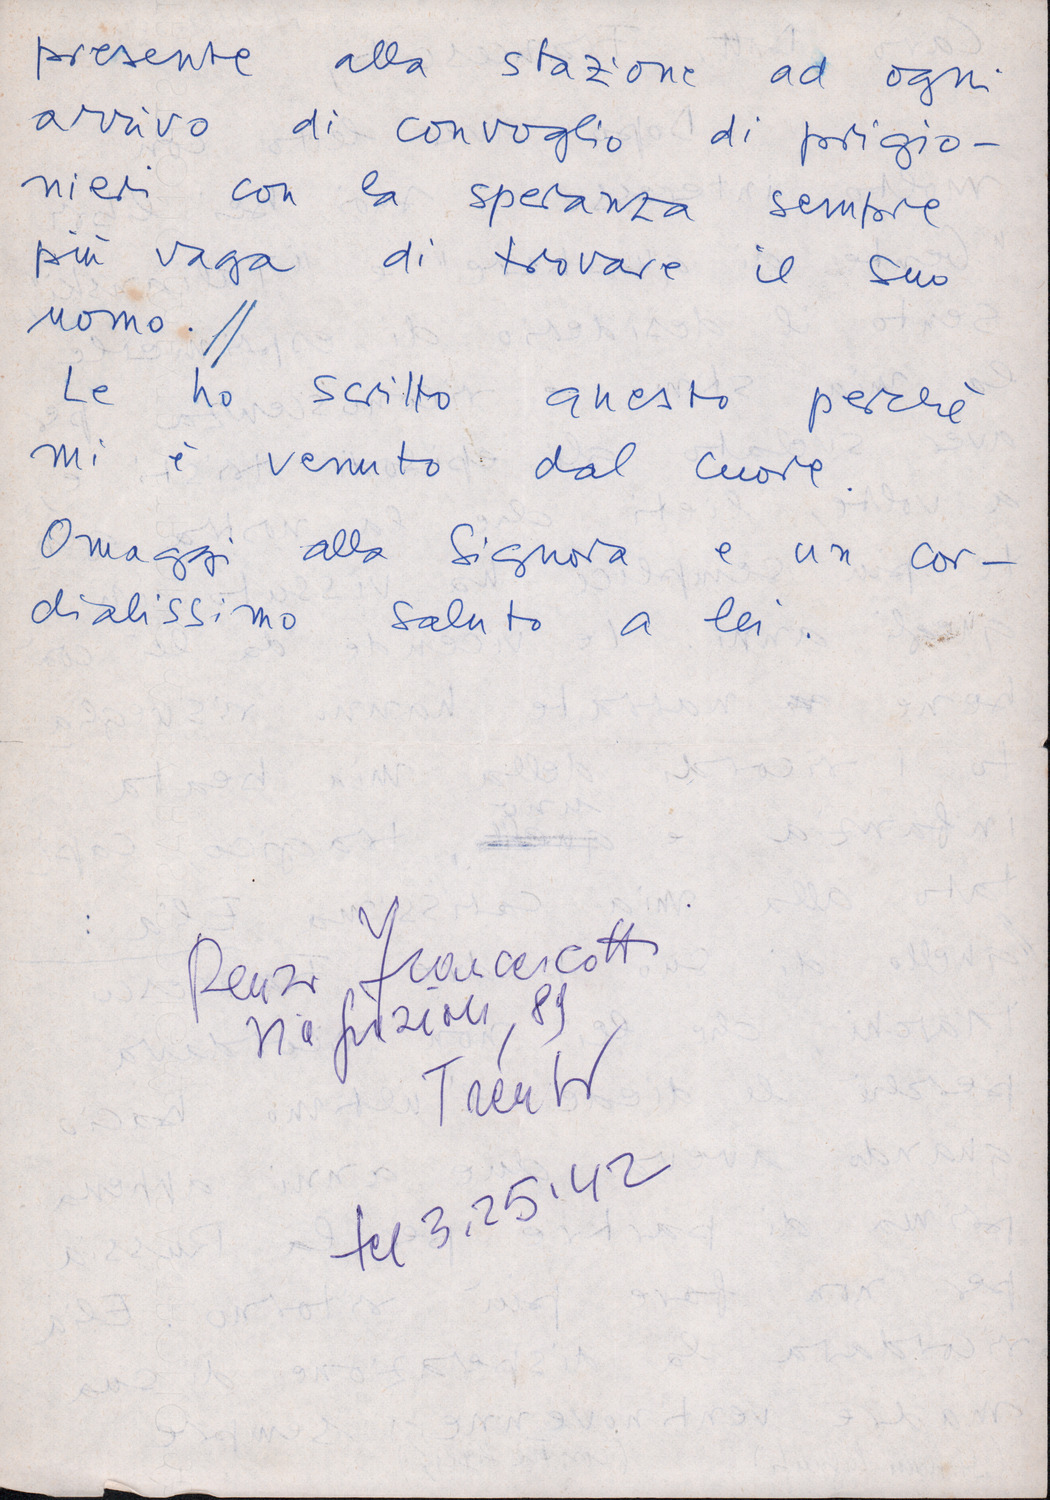 presente alla stazione ad ogni
arrivo di convoglio di prigio-
nieri con la speranza sempre
più vaga di trovare il suo
uomo. //
Le ho scritto questo perchè
mi è venuto dal cuore.
Omaggi alla Signora e un cor-
dialissimo saluto a lei.
Renzo Francescotti
Via Grazioli, 89
Trento
tel 3.25.42